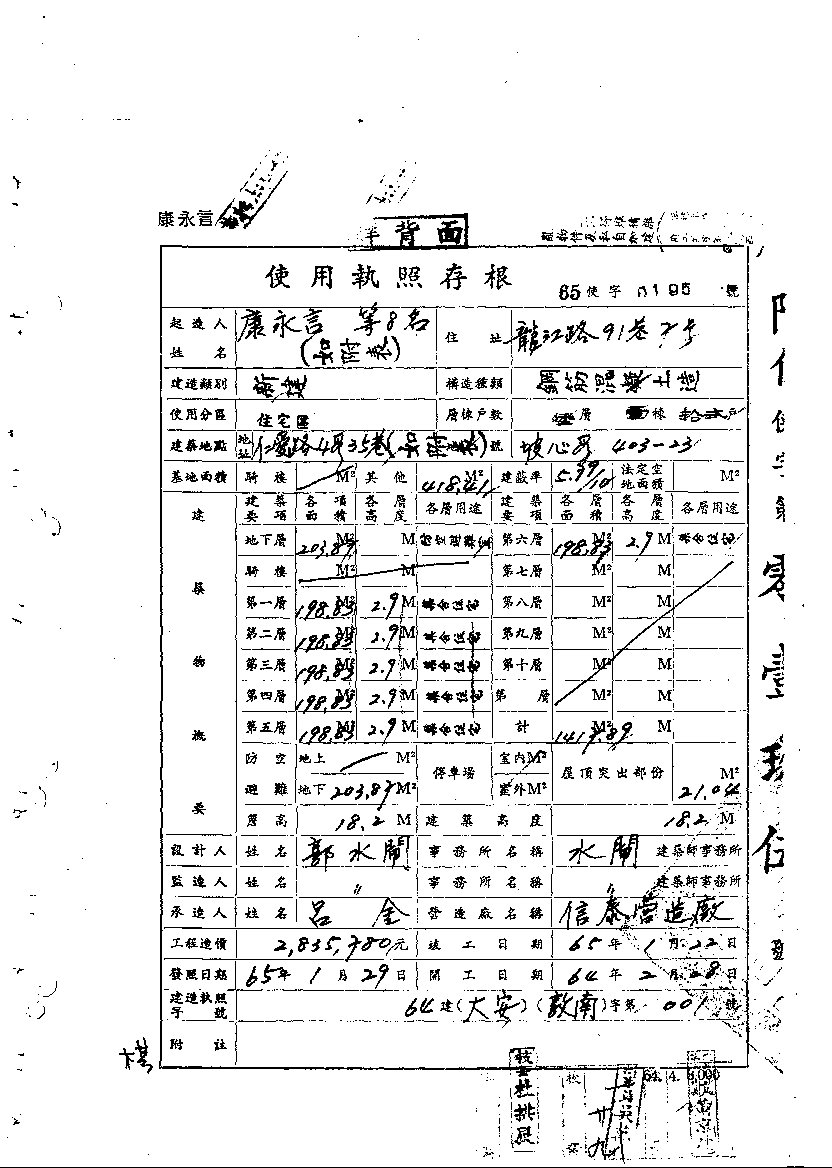 康永言
背面
使用執照存根
65使字0195號
起造人姓名 康永言 等8名 (如附表) 住址 龍江路91巷2号
建造類別 新建 構造種類 鋼筋混凝土造
使用分區 住宅區 層棟戶數 層 棟 戶
建築地點 地址 仁愛路4段35巷(如附表)號 坡心段 403-23
基地面積 騎樓 M² 其他 418.41 M² 建蔽率 5.39/10 法定空地面積 M²
建築物概要 建築要項 各項面積 各層高度 各層用途 建築要項 各層面積 各層高度 各層用途
地下層 203.87 M² M 第六層 198.83 M² 2.9 M 集合住宅
騎樓 M² M 第七層 M² M
第一層 198.83 M² 2.9 M 集合住宅 第八層 M² M
第二層 198.83 M² 2.9 M 集合住宅 第九層 M² M
第三層 198.83 M² 2.9 M 集合住宅 第十層 M² M
第四層 198.83 M² 2.9 M 集合住宅 第 層 M² M
第五層 198.83 M² 2.9 M 集合住宅 計 1417.89 M² M
防空避難 地上 M² 停車場 室內 M² 屋頂突出部份 M²
地下 203.87 M² 室外 M² 21.04
簷高 18.2 M 建築高度 18.2 M
設計人 姓名 郭水閘 事務所名稱 水閘 建築師事務所
監造人 姓名 〃 事務所名稱 〃 建築師事務所
承造人 姓名 呂金 營造廠名稱 信泰營造廠
工程造價 2,835,780元 竣工日期 65年1月22日
發照日期 65年1月29日 開工日期 64年2月28日
建造執照字號 64建(大安)(敦南)字第001號
附註
64. 4.